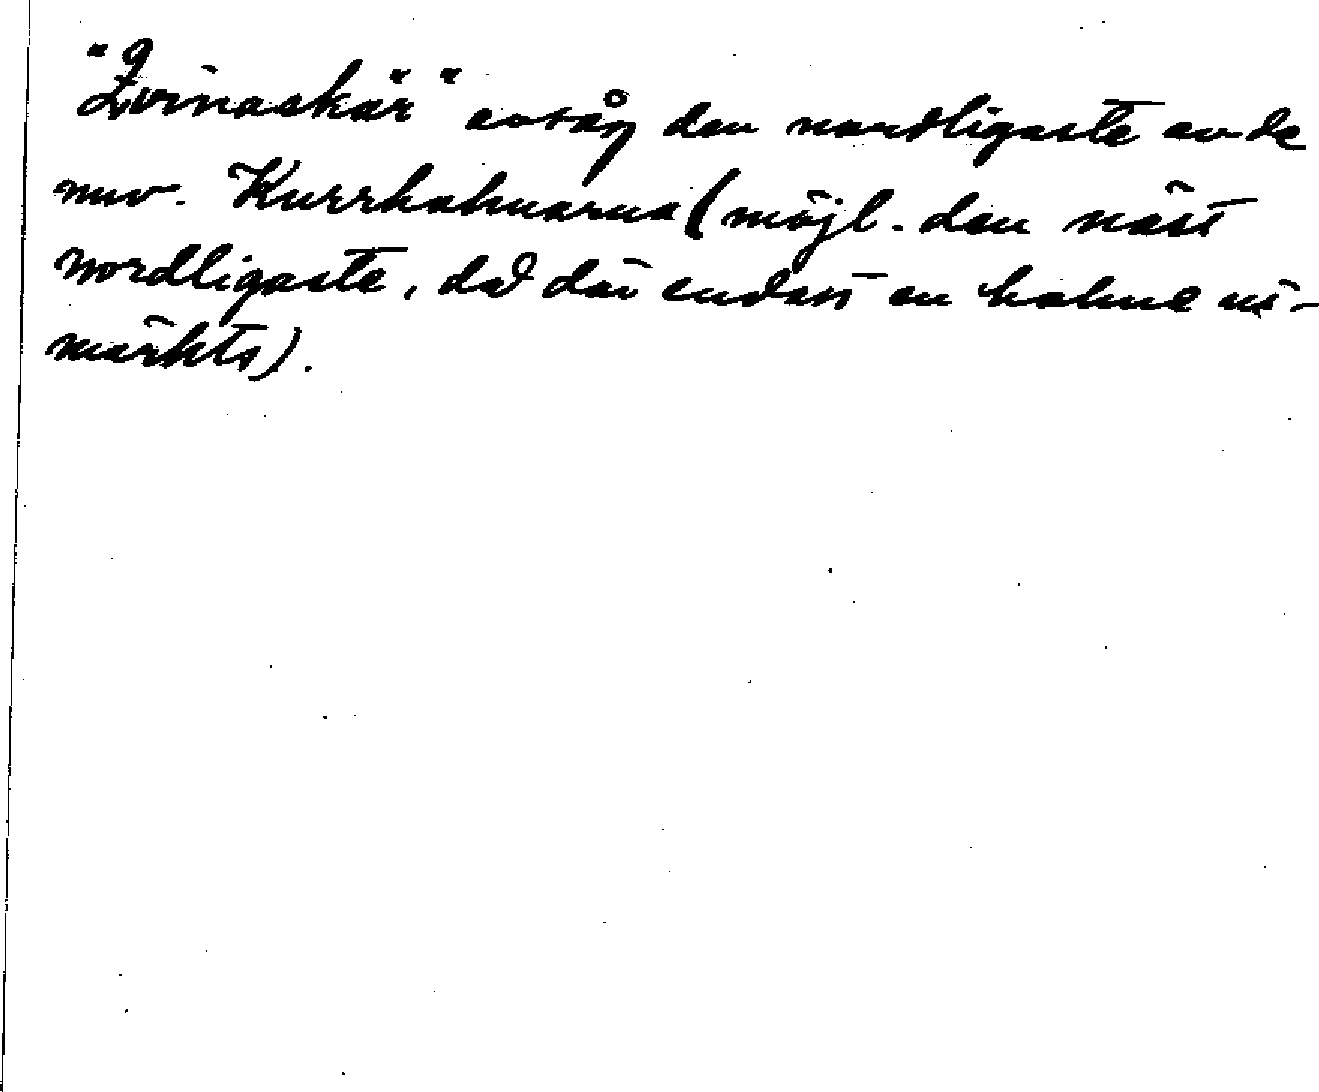 "Zvinaskär" avsåg den nordligaste av de
nuv. Kurrholmarna (möjl. den näst
nordligaste, då där endast en holme ut-
märkts).